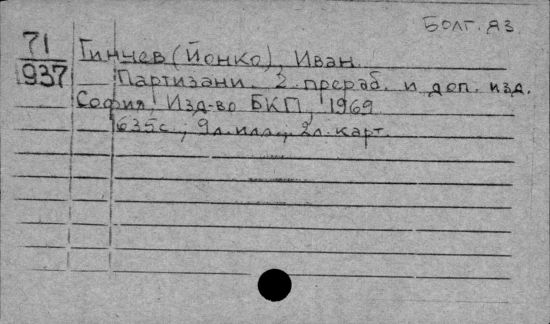 Болг. яз.
71
937
Гинчев (Йонко), Иван.
Партизани. 2. прераб. и доп. изд.
София, Изд-во БКП, 1969
635с., 9л.илл., 2л.карт.